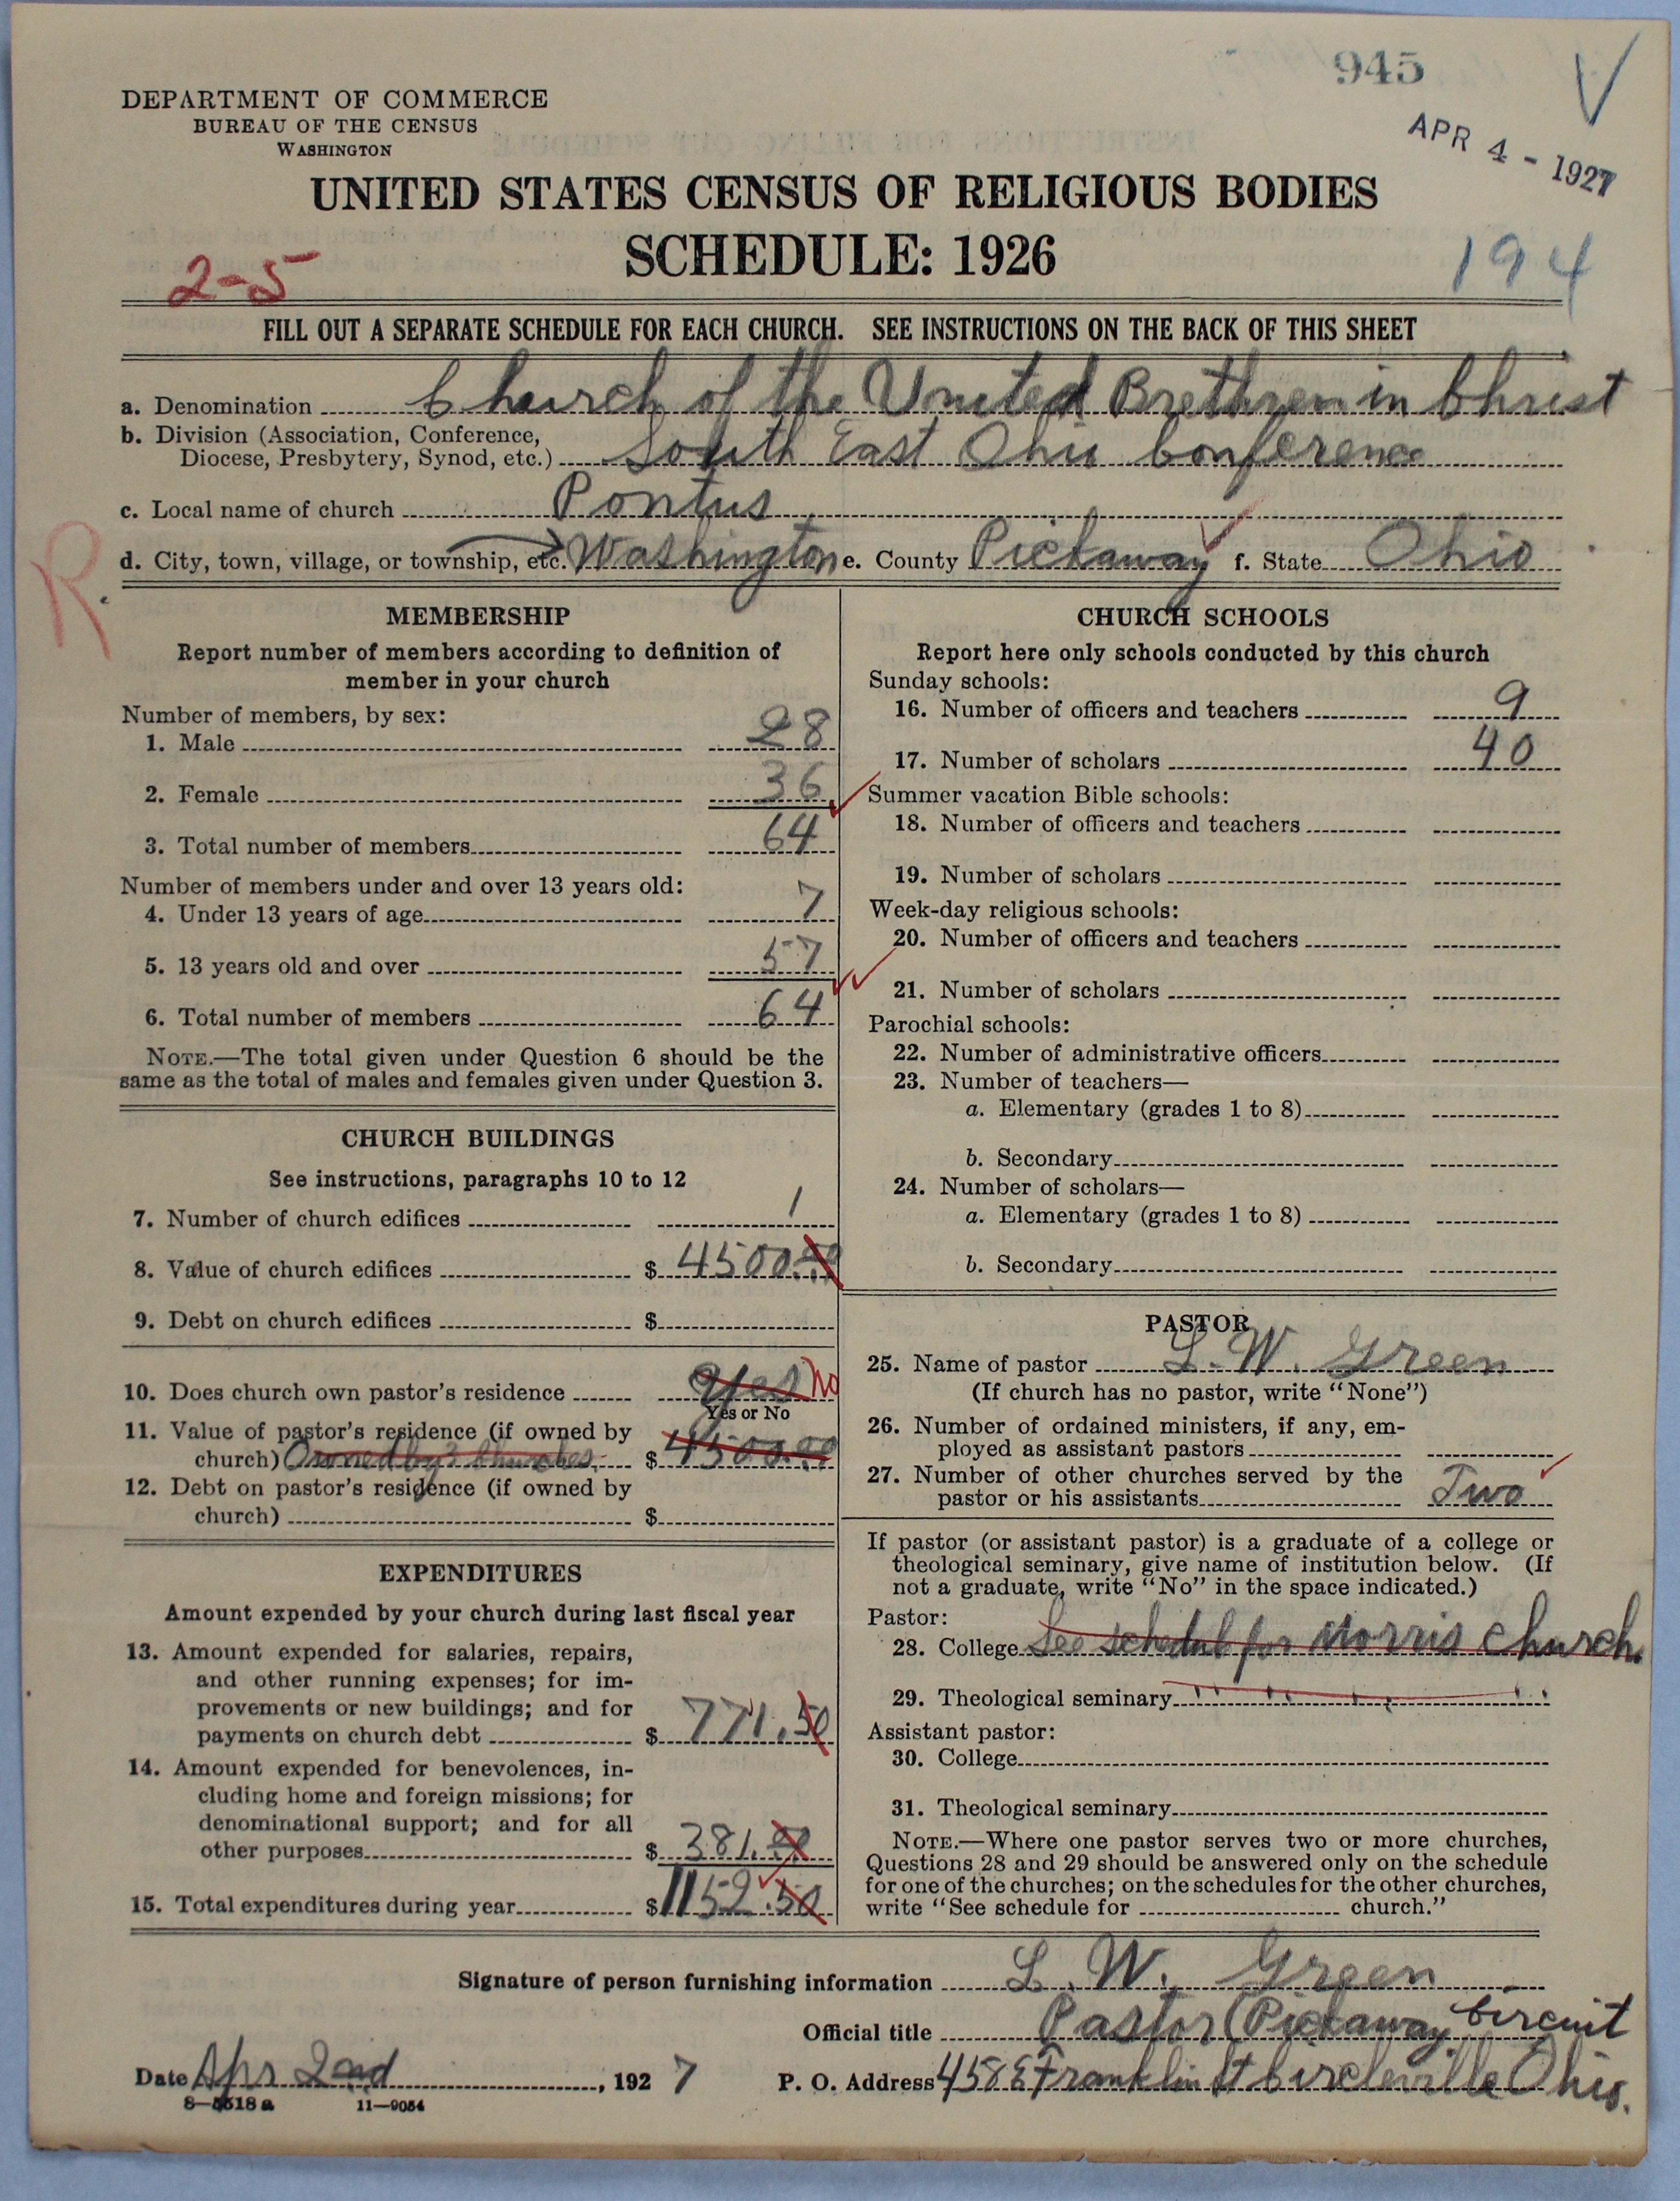 945
APR 4 - 1927
DEPARTMENT OF COMMERCE
BUREAU OF THE CENSUS
WASHINGTON
UNITED STATES CENSUS OF RELIGIOUS BODIES
SCHEDULE: 1926
2-5
194
FILL OUT A SEPARATE SCHEDULE FOR EACH CHURCH. SEE INSTRUCTIONS ON THE BACK OF THIS SHEET
a. Denomination Church of the United Brethren in Christ
b. Division (Association, Conference,
Diocese, Presbytery, Synod, etc.) South East Ohio Conference
c. Local name of church Pontius
d. City, town, village, or township, etc. Washington e. County Pickaway f. State Ohio
R.
MEMBERSHIP
Report number of members according to definition of
member in your church
Number of members, by sex:
1. Male 28
2. Female 36
3. Total number of members 64
Number of members under and over 13 years old:
4. Under 13 years of age 7
5. 13 years old and over 57
6. Total number of members 64
NOTE.—The total given under Question 6 should be the
same as the total of males and females given under Question 3.
CHURCH BUILDINGS
See instructions, paragraphs 10 to 12
7. Number of church edifices 1
8. Value of church edifices $ 4500.00
9. Debt on church edifices $
10. Does church own pastor's residence Yes No
Yes or No
11. Value of pastor's residence (if owned by
church) Owned by 3 churches. $ 4500.00
12. Debt on pastor's residence (if owned by
church) $
EXPENDITURES
Amount expended by your church during last fiscal year
13. Amount expended for salaries, repairs,
and other running expenses; for im-
provements or new buildings; and for
payments on church debt $ 771.50
14. Amount expended for benevolences, in-
cluding home and foreign missions; for
denominational support; and for all
other purposes $ 381.00
15. Total expenditures during year $ 1152.50
CHURCH SCHOOLS
Report here only schools conducted by this church
Sunday schools:
16. Number of officers and teachers 9
17. Number of scholars 40
Summer vacation Bible schools:
18. Number of officers and teachers
19. Number of scholars
Week-day religious schools:
20. Number of officers and teachers
21. Number of scholars
Parochial schools:
22. Number of administrative officers
23. Number of teachers—
a. Elementary (grades 1 to 8)
b. Secondary
24. Number of scholars—
a. Elementary (grades 1 to 8)
b. Secondary
PASTOR
25. Name of pastor L. W. Green
(If church has no pastor, write "None")
26. Number of ordained ministers, if any, em-
ployed as assistant pastors
27. Number of other churches served by the
pastor or his assistants Two
If pastor (or assistant pastor) is a graduate of a college or
theological seminary, give name of institution below. (If
not a graduate, write "No" in the space indicated.)
Pastor:
28. College See schedul for Morris Church.
29. Theological seminary " " " " "
Assistant pastor:
30. College
31. Theological seminary
NOTE.—Where one pastor serves two or more churches,
Questions 28 and 29 should be answered only on the schedule
for one of the churches; on the schedules for the other churches,
write "See schedule for church."
Signature of person furnishing information L. W. Green
Official title Pastor (Pickaway Circuit
Date Apr 2nd, 1927 P. O. Address 458 E Franklin St Circleville Ohio.
8—5518a 11—9054